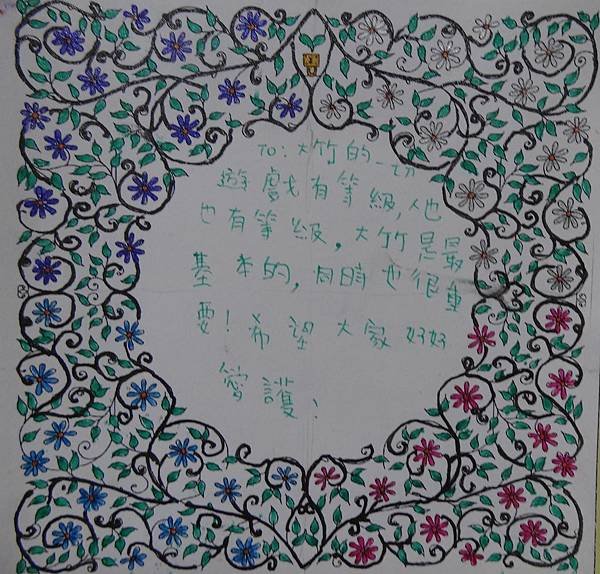 To:大竹的一切
遊戲有等級,他
也有等級,大竹是最
基本的,同時也很重
要!希望大家好好
愛護!